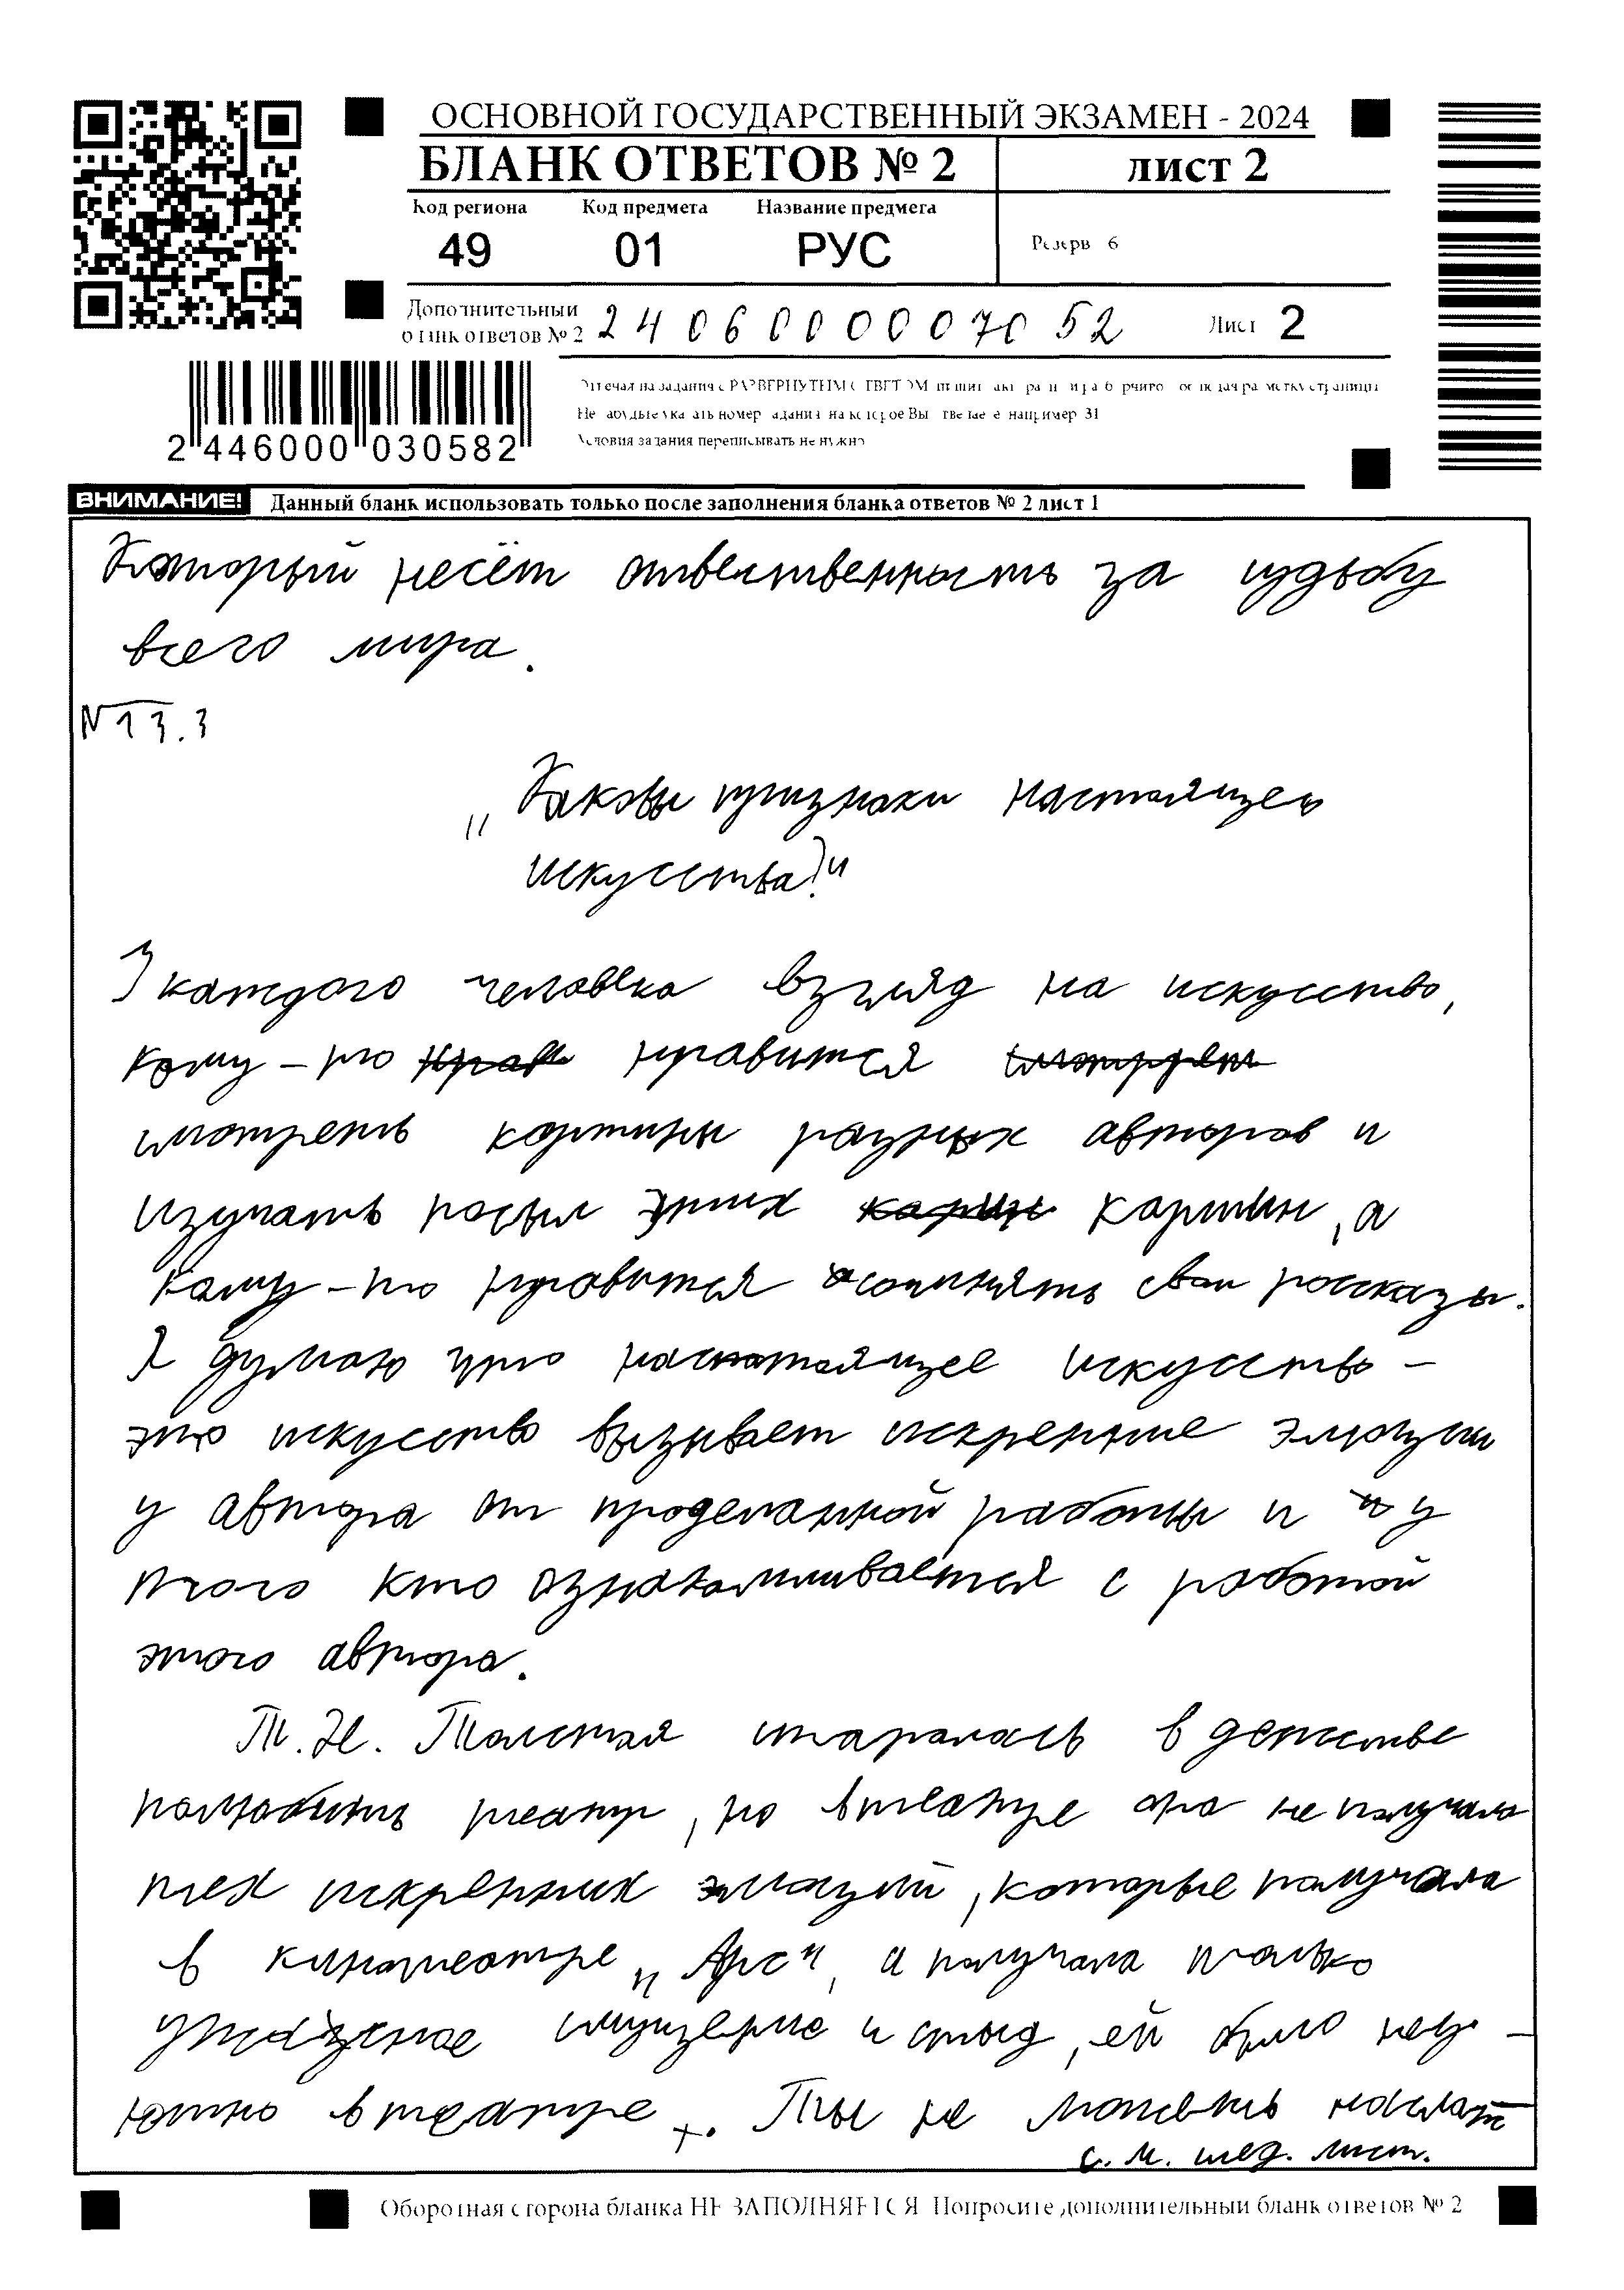 ОСНОВНОЙ ГОСУДАРСТВЕННЫЙ ЭКЗАМЕН - 2024
БЛАНК ОТВЕТОВ № 2
лист 2
Код региона Код предмета Название предмета
49 01 РУС
Резерв 6
Дополнительный
бланк ответов № 2 2406000007052
Лист 2
2 446000 030582
Отвечая на задания с РАЗВЕРНУТЫМ ОТВЕТОМ
Не забудьте указать номер задания на которое Вы отвечаете например 31
Условия задания переписывать не нужно
ВНИМАНИЕ! Данный бланк использовать только после заполнения бланка ответов № 2 лист 1
Который несёт отвественность за судьбу
всего мира.
N13.3
„Каковы признаки настоящего
искусства?"
У каждого человека взгляд на искусство,
кому-то нрав нравится смотрреть
смотреть картины разных авторов и
изучать посыл этих карин картин, а
кому-то нравится сочинять свои рассказы.
Я думаю что настоящее искусство -
это искусство вызывает искренние эмоции
у автора от проделанной работы и и у
того кто ознакамливается с работой
этого автора.
Т.Н. Толстая старалась в детстве
полюбить театр, но в театре она не получала
тех искренних эмоций, которые получала
в кинотеатре „Арс", а получала только
ужасное смущение и стыд, ей было неу-
ютно в театре. Ты не можешь наслаж
с.м. след. лист.
Оборотная сторона бланка НЕ ЗАПОЛНЯЕТСЯ Попросите дополнительный бланк ответов № 2